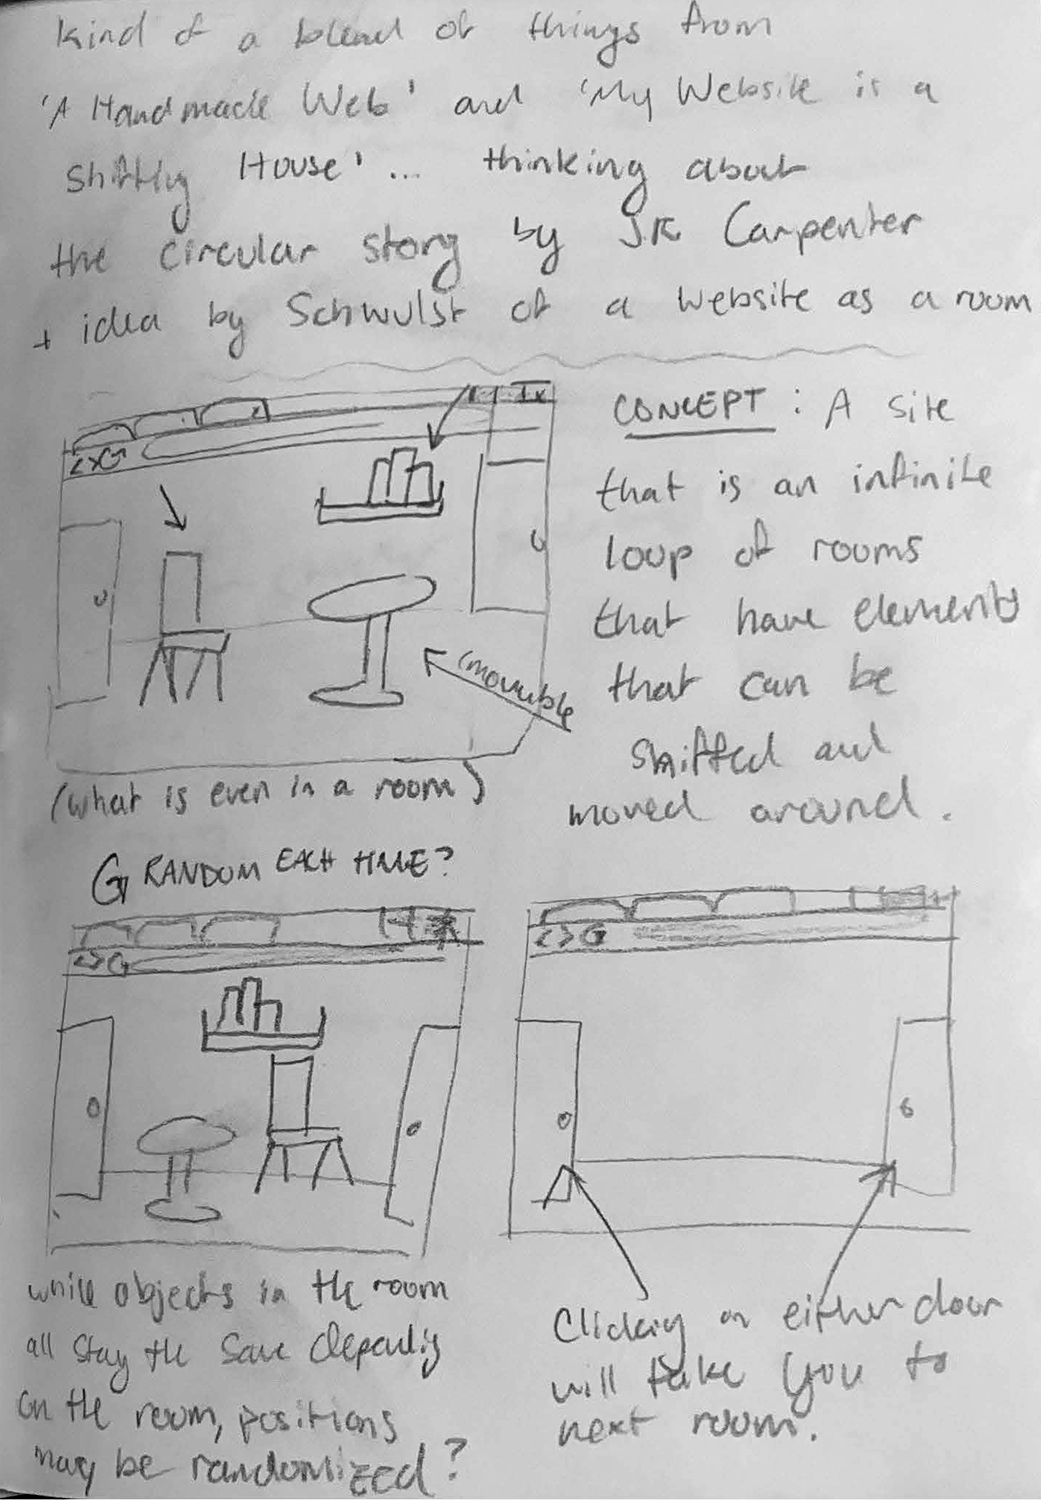 kind of a blend of things from
'A Handmade Web' and 'My Website is a
Shifting House'... thinking about
the circular story by J.R. Carpenter
+ idea by Schwulst of a website as a room
CONCEPT : A site
that is an infinite
loop of rooms
that have elements
that can be
shifted and
moved around.
(movable
(what is even in a room)
G RANDOM EACH TIME?
while objects in the room
all stay the same depending
on the room, positions
may be randomized?
Clicking on either door
will take you to
next room.